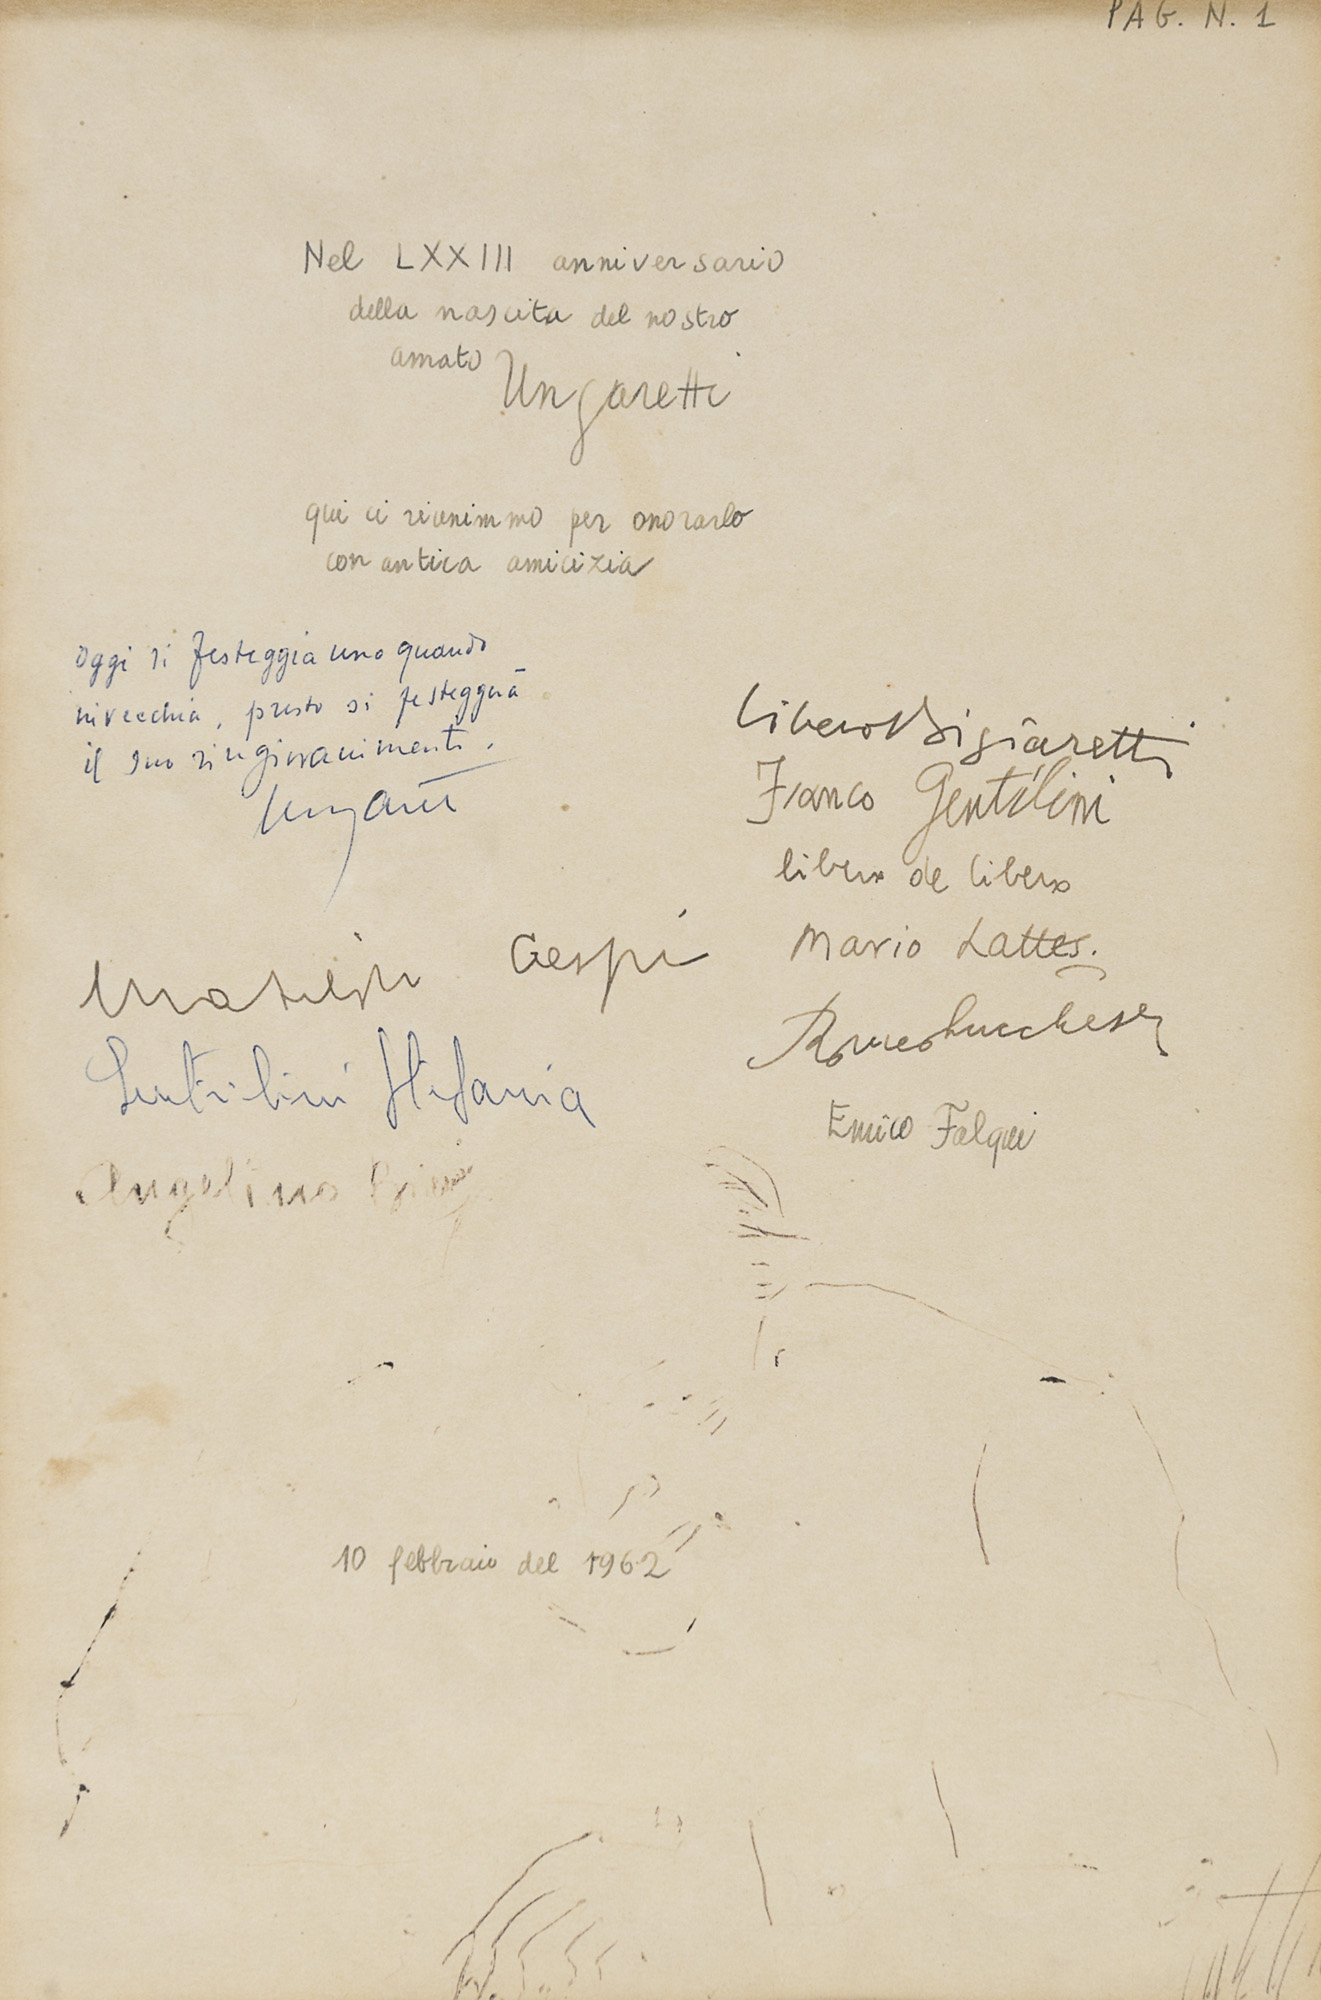 PAG. N. 1
Nel LXXIII anniversario
della nascita del nostro
amato Ungaretti
qui ci riunimmo per onorarlo
con antica amicizia
Oggi si festeggia uno quando
invecchia, presto si festeggerà
il suo ringiovanimento.
Ungaretti
Libero Bigiaretti
Franco Gentilini
libero de libero
Mario Lattes.
Romeo Lucchese
Enrico Falqui
Crespi
Gentilini Stefania
Angelina
10 febbraio del 1962